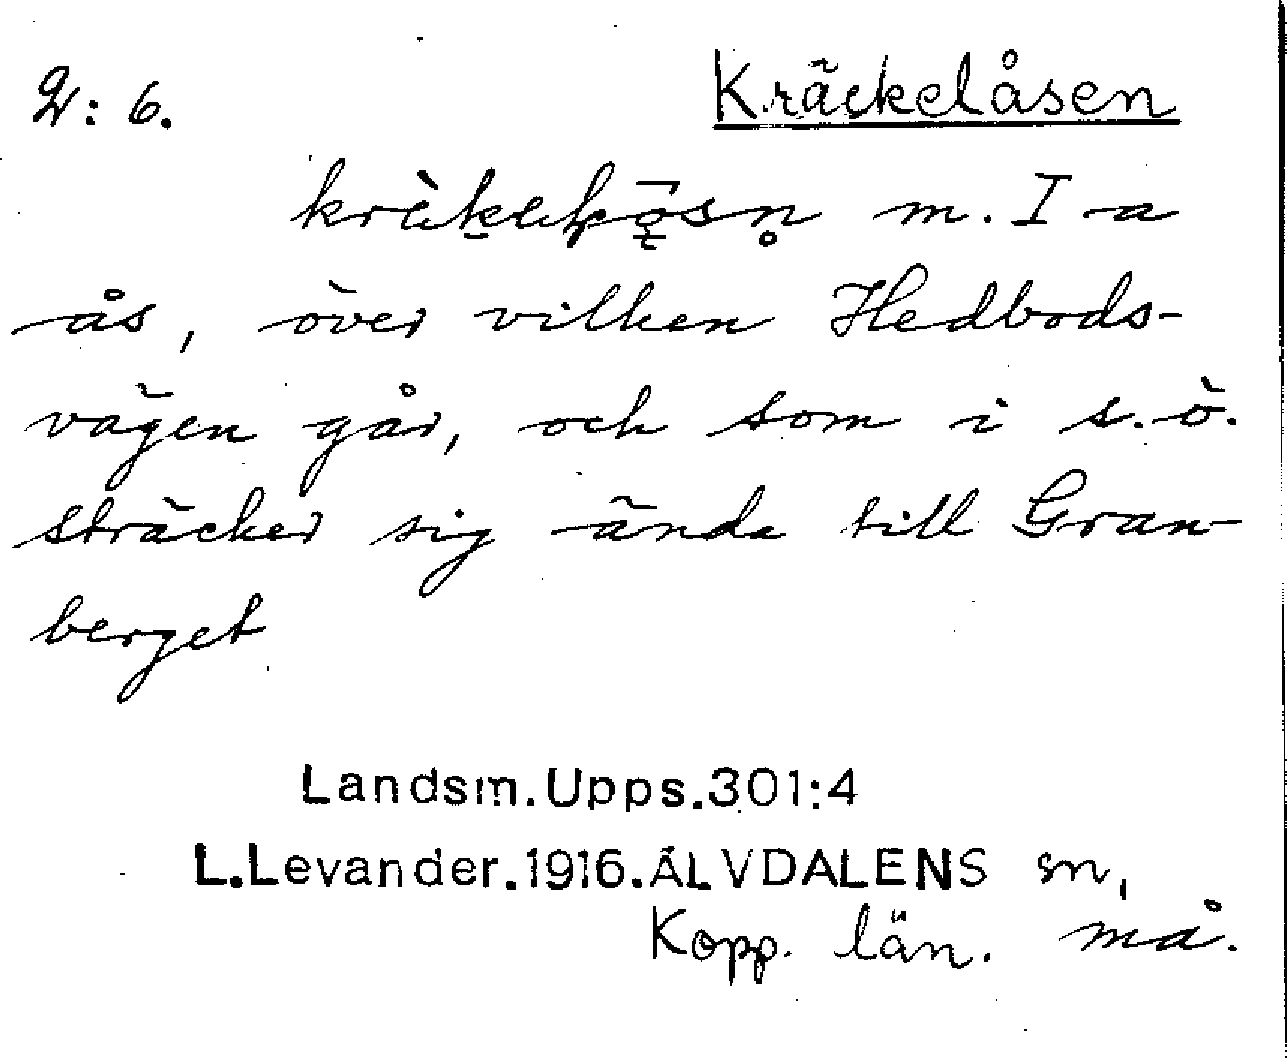 2: 6. Kräckelåsen
m. I a
ås, över vilken Hedbods-
vägen går, och som i s.ö.
sträcker sig ända till Gran-
berget
Landsm.Upps.301:4
L.Levander.1916.ÄLVDALENS sn,
Kopp. län. må.